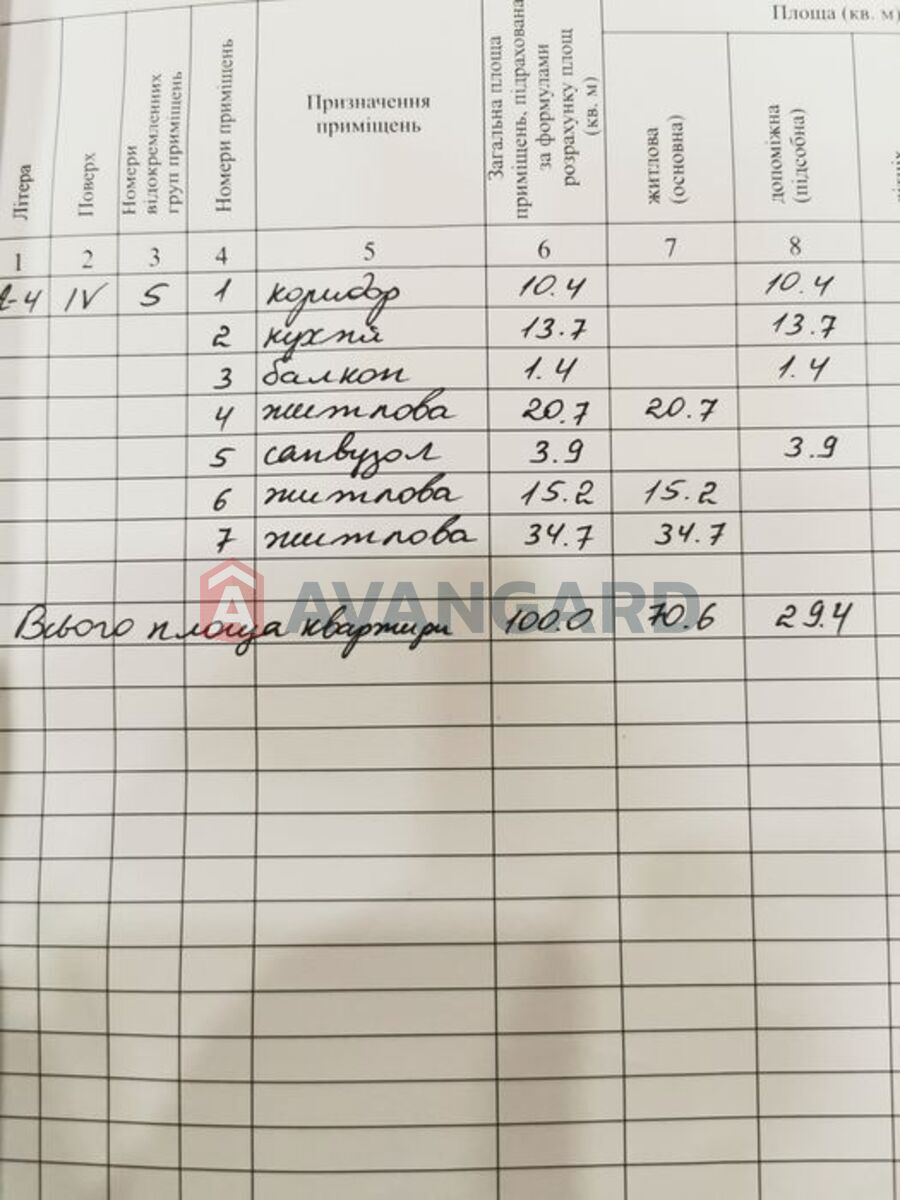 Площа (кв. м)
Літера
Поверх
Номери
відокремленних
груп приміщень
Номери приміщень
Призначення
приміщень
Загальна площа
приміщень, підрахована
за формулами
розрахунку площ
(кв. м)
житлова
(основна)
допоміжна
(підсобна)
1 2 3 4 5 6 7 8
-4 IV 5 1 коридор 10.4 10.4
2 кухня 13.7 13.7
3 балкон 1.4 1.4
4 житлова 20.7 20.7
5 санвузол 3.9 3.9
6 житлова 15.2 15.2
7 житлова 34.7 34.7
AVANGARD
Всього площа квартири 100.0 70.6 29.4